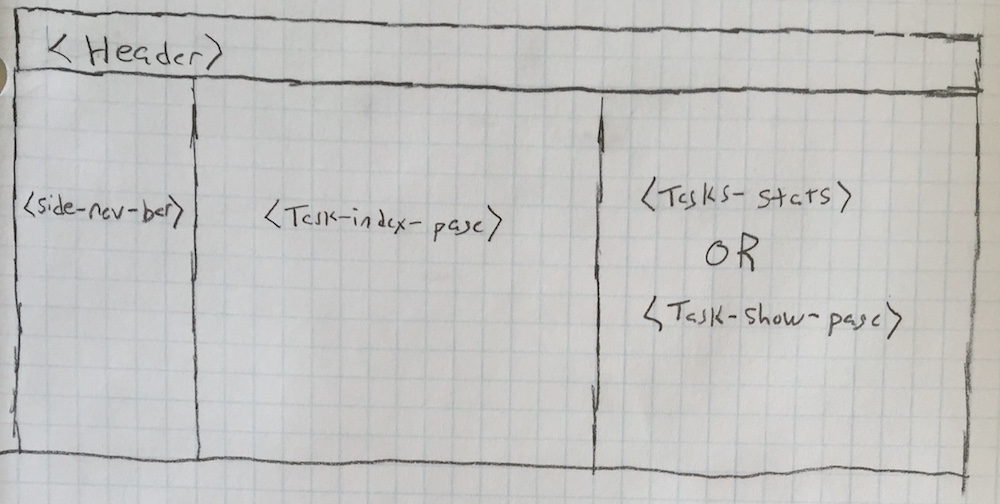 <Header>
<side-nav-bar>
<Task-index-page>
<Tasks-stats>
OR
<Task-show-page>